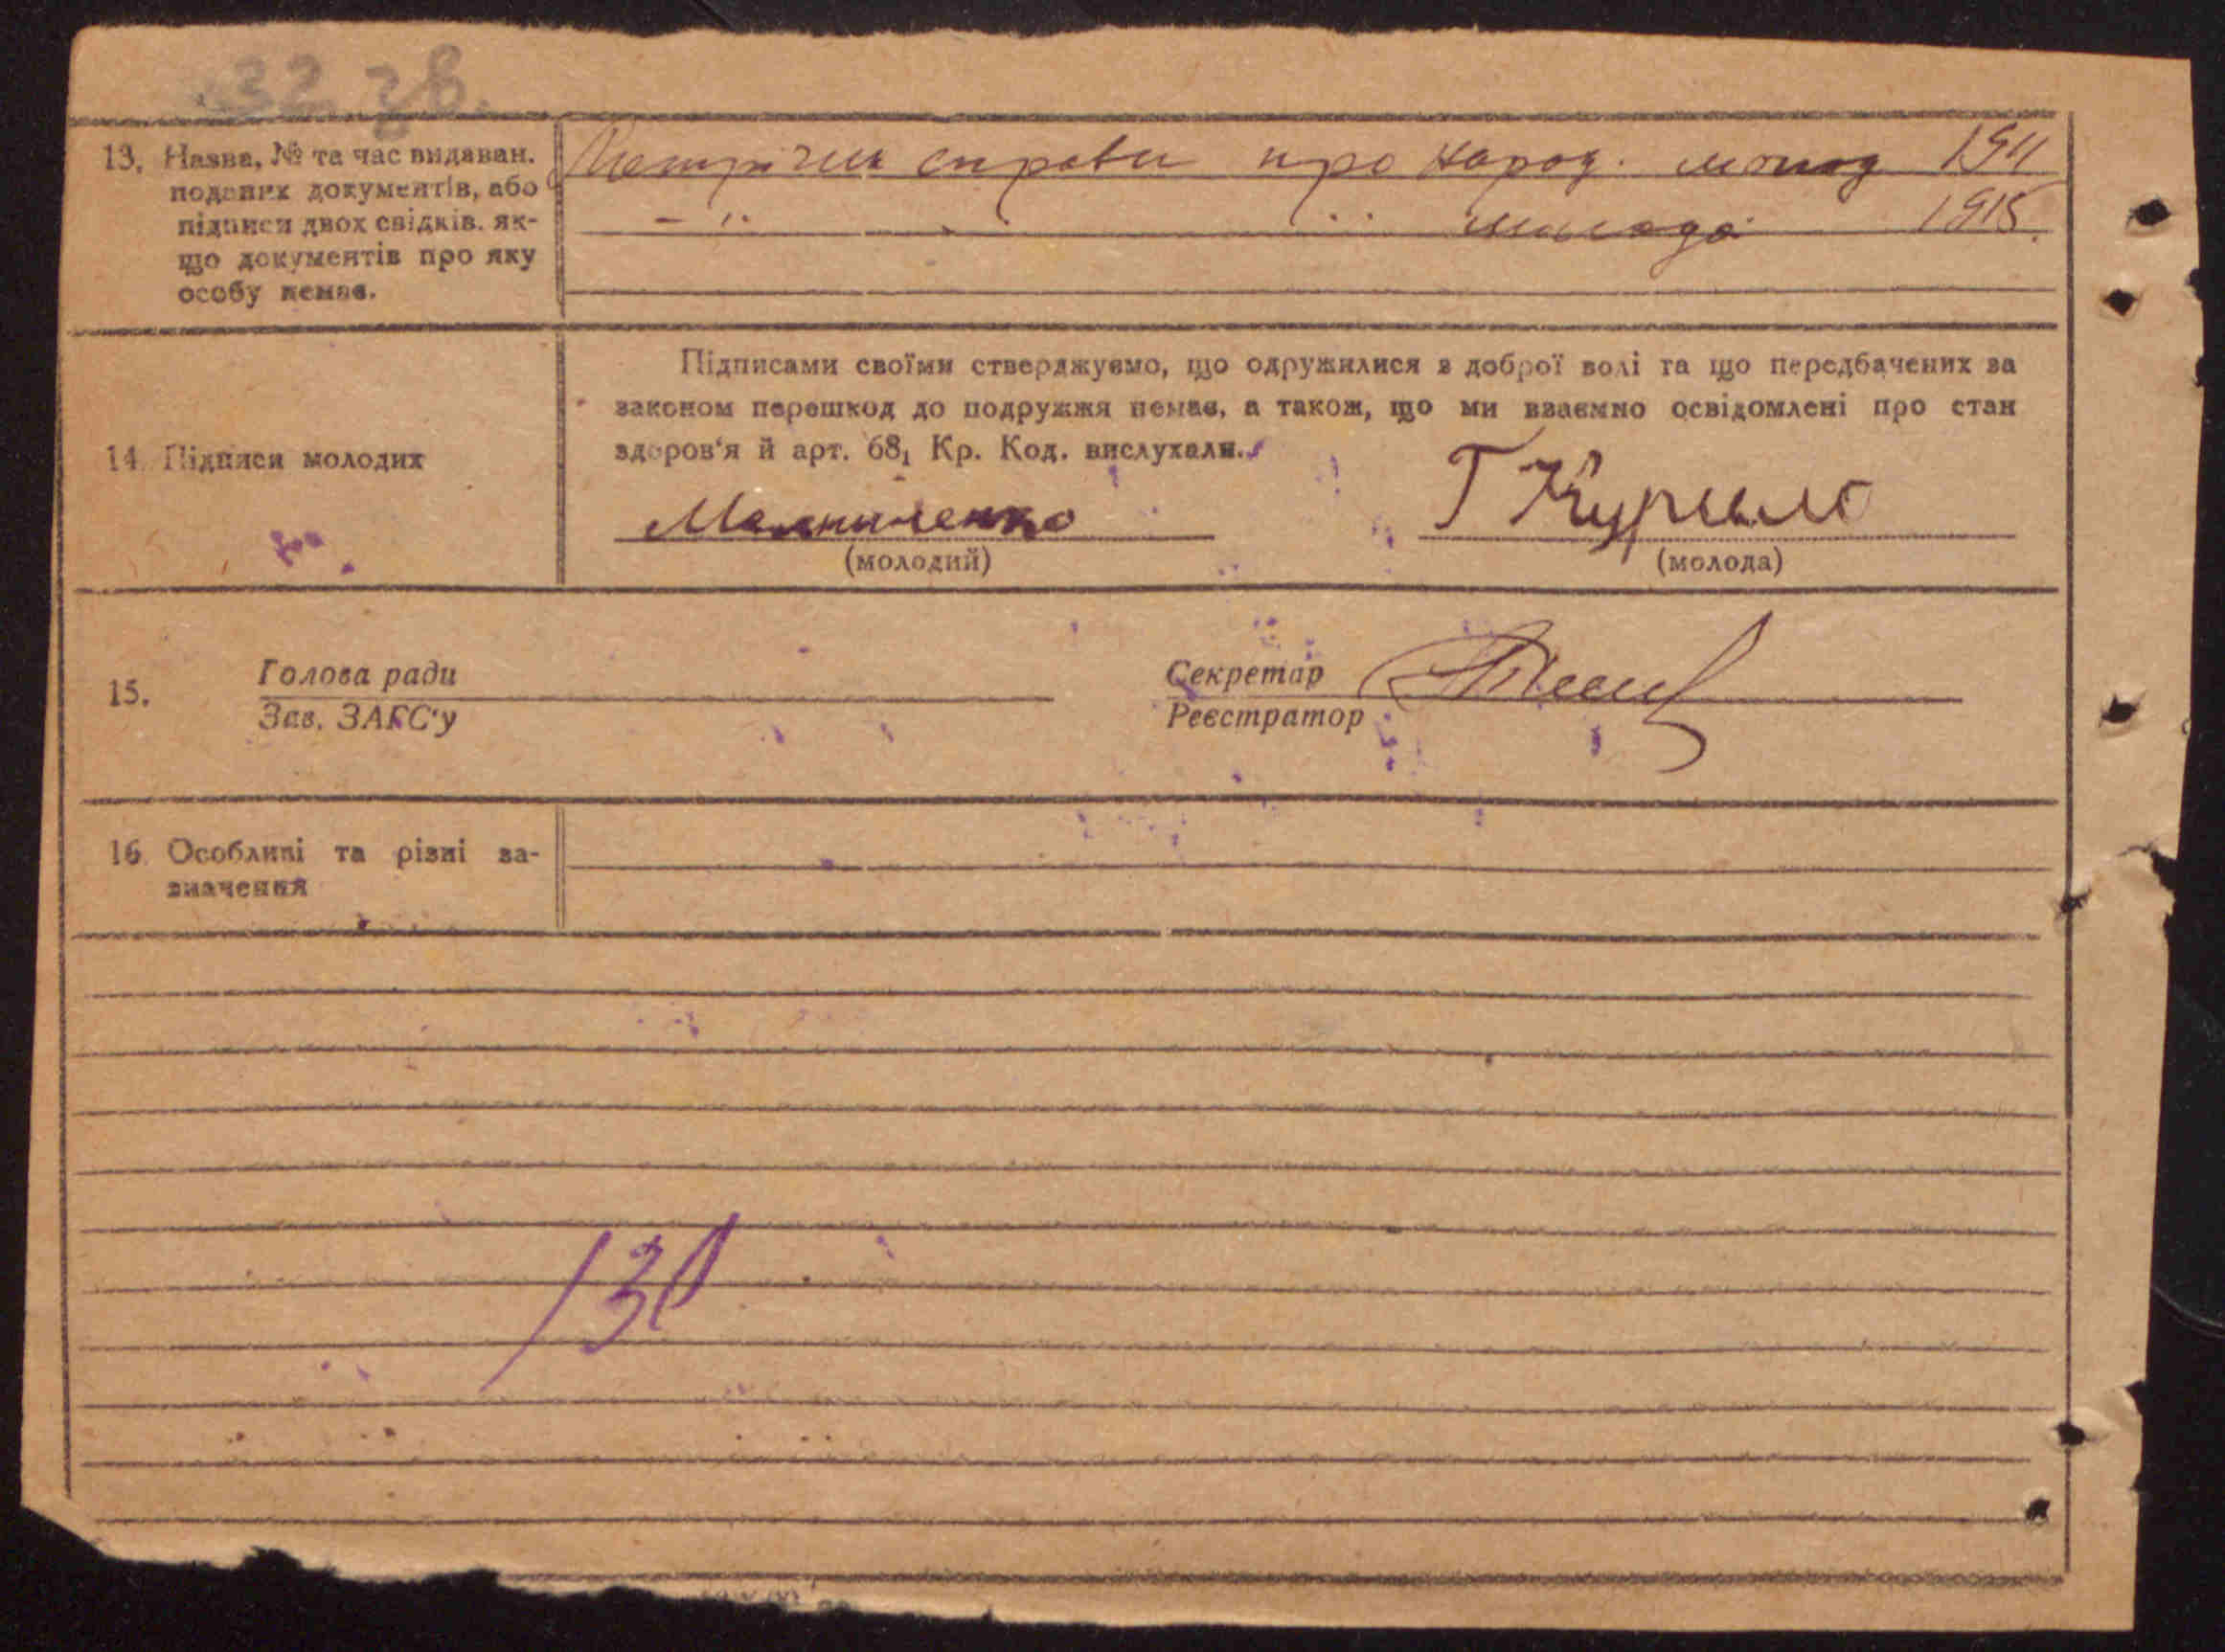 32 38.
13. Назва, № та час видаван.
поданих документів, або
підписи двох свідків, як-
що документів про яку
особу немає.
Метричні справки про народ. молод 1911
— ״ ״ ״ молода 1915.
14. Підписи молодих
Підписами своїми стверджуємо, що одружилися з доброї волі та що передбачених за
законом перешкод до подружжя немає, а також, що ми взаємно освідомлені про стан
здоров'я й арт. 68₁ Кр. Код. вислухали.
(молодий)
Г Курило
(молода)
15.
Голова ради
Зав. ЗАГС'у
Секретар
Реєстратор
16. Особливі та різні за-
значення